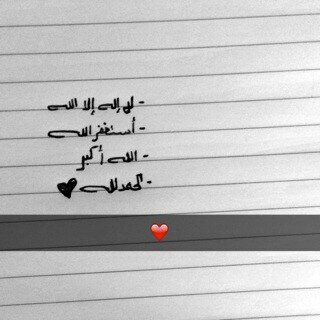 - لا إله إلا الله
- أستغفر الله
- الله أكبر
- الحمدلله ♥
❤️